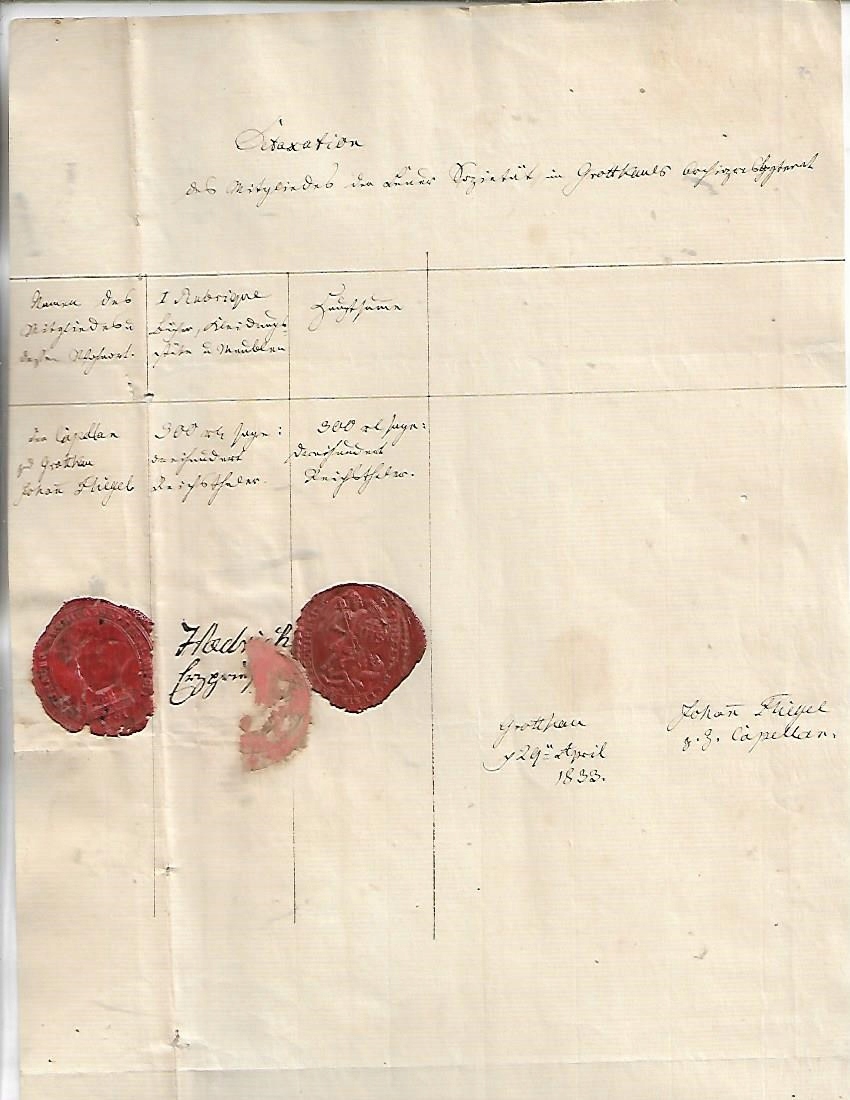 Detaxation
des Mitgliedes der Feuer Sozietät in Grottkauls Archipresbyterat
Namen des
Mitgliedes u
dessen Wohnort.
I Rubrique
Bücher, Kleidungs-
stüke u Meublen
Hauptsumme
der Capellan
zu Grottkau
Johan̅ Fliegel
300 rtl sage:
dreihundert
Reichsthaler.
300 rl sage:
dreihundert
Reichsthaler.
Hoedrich
Erzpriest
Grottkau
29ᵗ April
1833.
Johan̅ Fliegel
z. Z. Capellan.